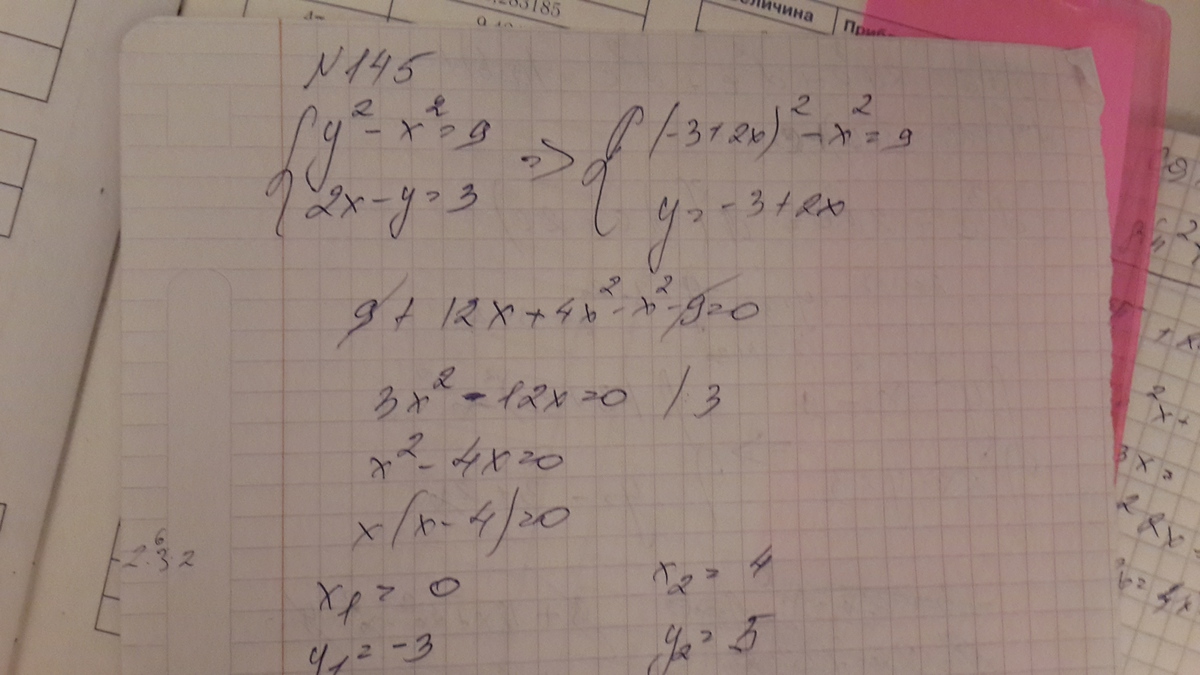 .283185
еличина
N145
{ y² - x² = 9 => { (-3+2x)² - x² = 9
2x - y = 3 y = -3+2x
9 + 12x + 4x² - x² - 9 = 0
3x² - 12x = 0 / 3
x² - 4x = 0
x(x - 4) = 0
x₁ = 0 x₂ = 4
y₁ = -3 y₂ = 5